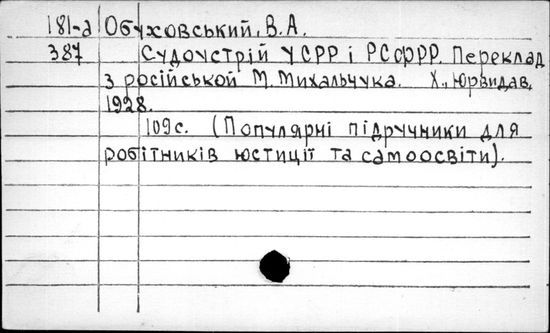 181-д Обуховський, В.А.
387 Судоустрій УСРР і РСФРР. Переклад
з російської М. Михальчука. Х., Юрвидав,
1928.
109с. (Популярні підручники для
робітників юстиції та самоосвіти).